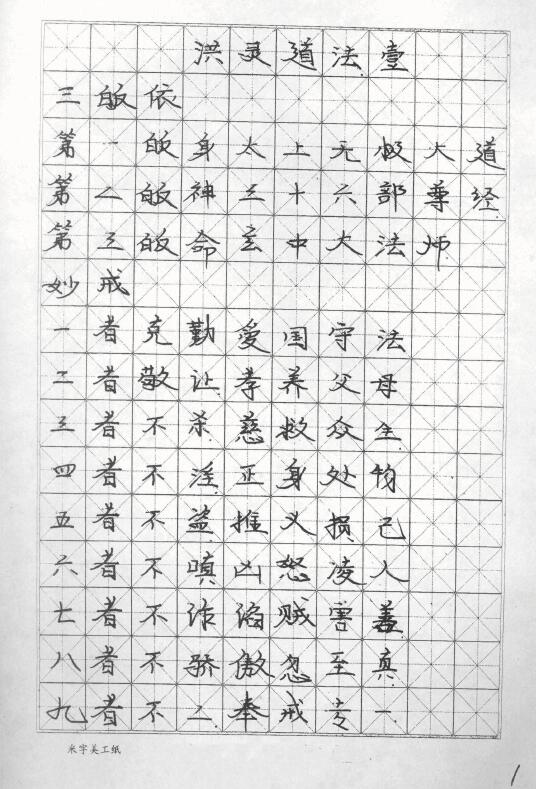 洪灵道法壹
三皈依
第一皈身太上无极大道
第二皈神三十六部尊经
第三皈命玄中大法师
妙戒
一者克勤爱国守法
二者敬让孝养父母
三者不杀慈救众生
四者不淫正身处物
五者不盗推义损己
六者不嗔凶怒凌人
七者不诈谄贼害善
八者不骄傲忽至真
九者不二奉戒专一
米字美工纸
1